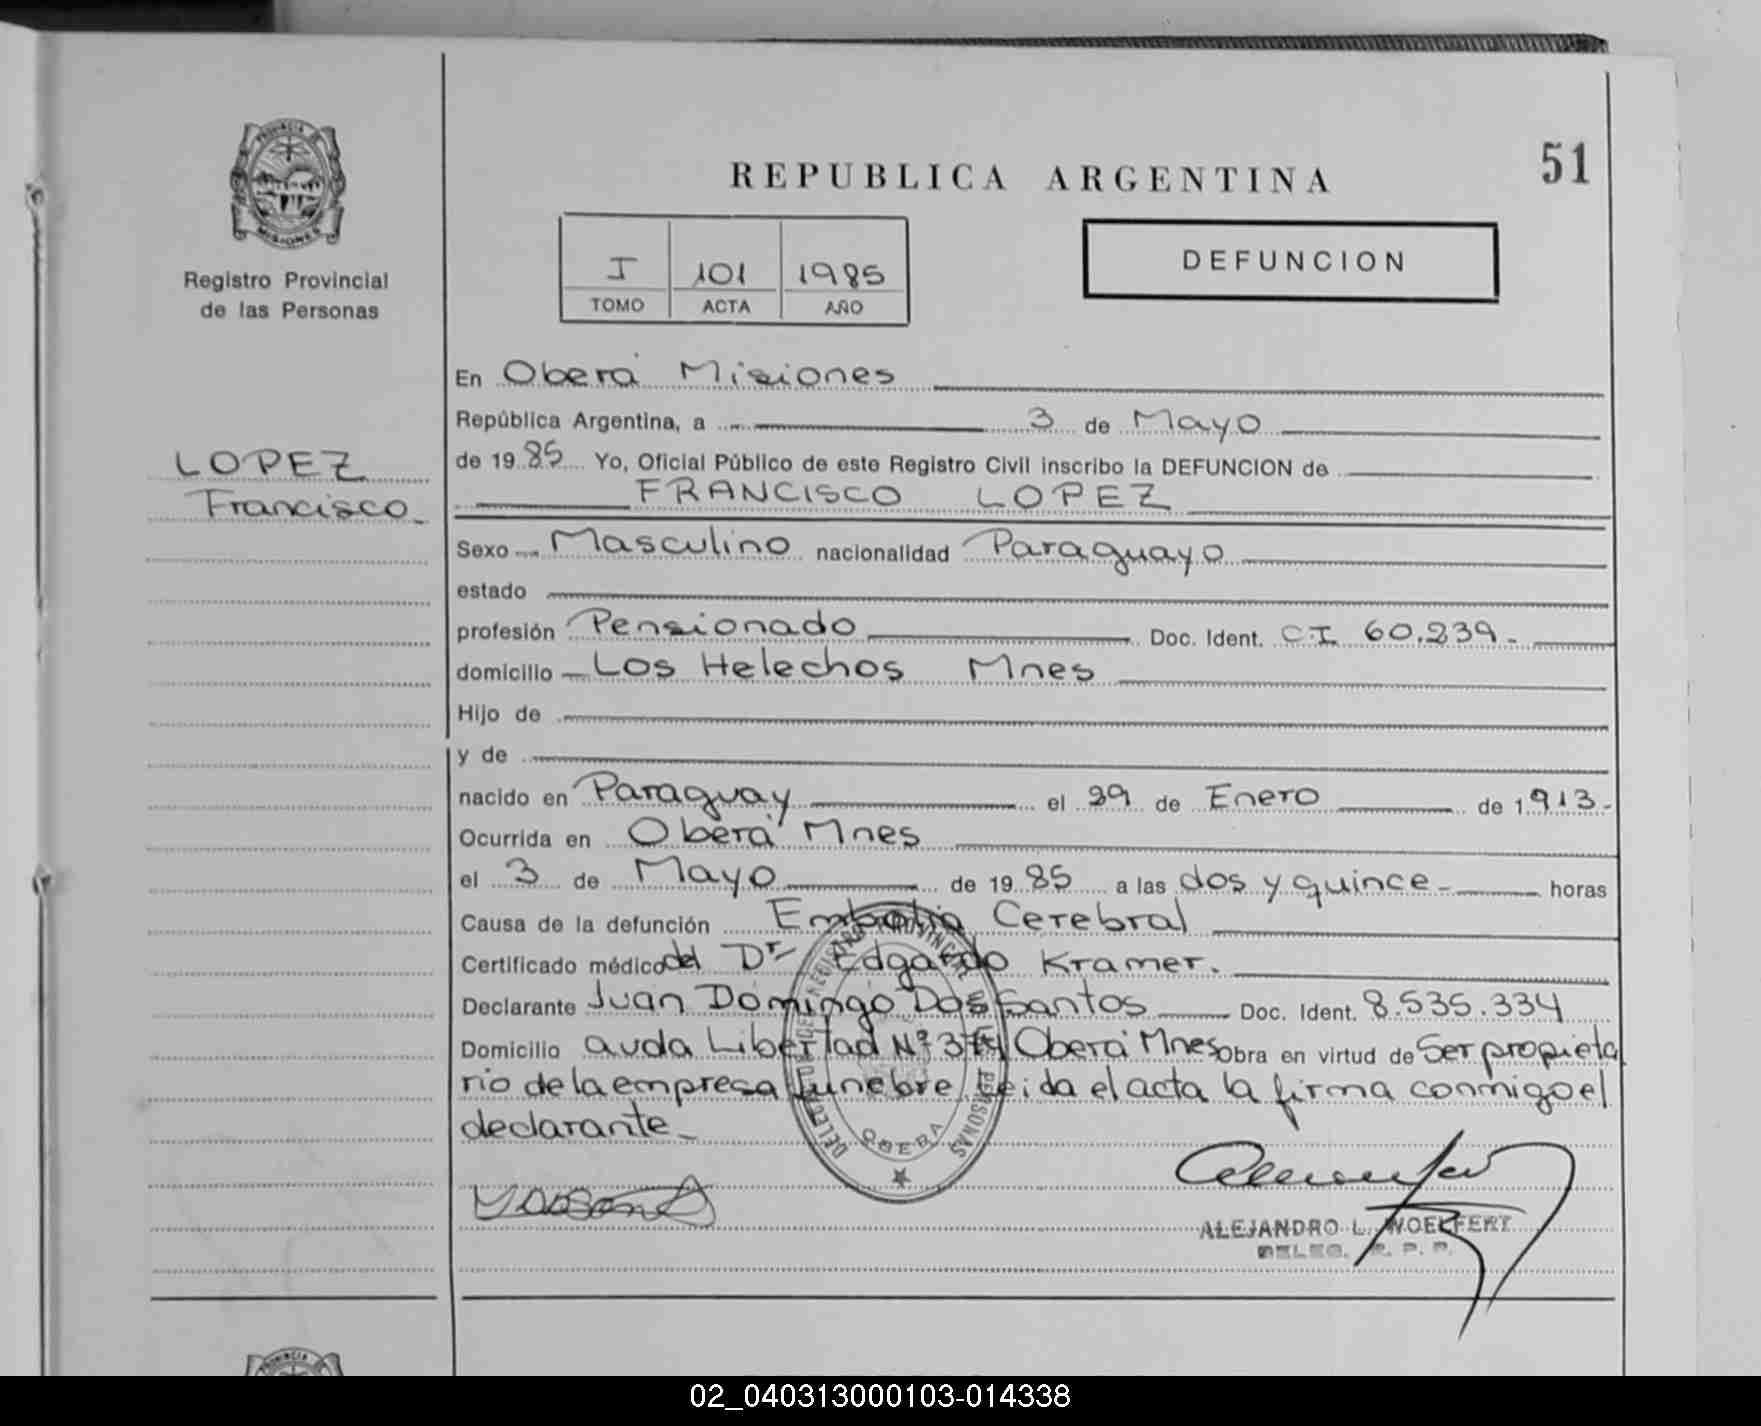 PROVINCIA DE
MISIONES
Registro Provincial
de las Personas
LOPEZ
Francisco
51
REPUBLICA ARGENTINA
I 101 1985
TOMO ACTA AÑO
DEFUNCION
En Oberá Misiones
República Argentina, a 3 de Mayo
de 1985 Yo, Oficial Público de este Registro Civil inscribo la DEFUNCION de
FRANCISCO LOPEZ
Sexo Masculino nacionalidad Paraguayo
estado
profesión Pensionado Doc. Ident. C.I 60.239.
domicilio Los Helechos Mnes
Hijo de
y de
nacido en Paraguay el 29 de Enero de 1913.
Ocurrida en Oberá Mnes
el 3 de Mayo de 1985 a las dos y quince horas
Causa de la defunción Embolia Cerebral
Certificado médico del Dr Edgardo Kramer.
Declarante Juan Domingo Dos Santos Doc. Ident. 8.535.334
Domicilio avda Libertad Nº Oberá Mnes Obra en virtud de Ser propieta
rio de la empresa funebre. Leida el acta la firma conmigo el
declarante
OBERA
ALEJANDRO L. WOELFERT
DELEG. R. P. P.
PROVINCIA
02_040313000103-014338